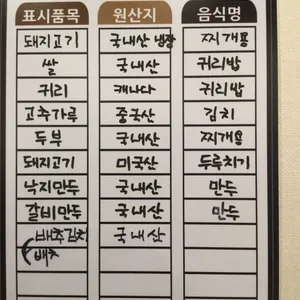 표시품목 원산지 음식명
돼지고기 국내산 냉장 찌개용
쌀 국내산 귀리밥
귀리 캐나다 귀리밥
고추가루 중국산 김치
두부 국내산 찌개용
돼지고기 미국산 두루치기
낙지만두 국내산 만두
갈비만두 국내산 만두
배추김치 국내산
(배추